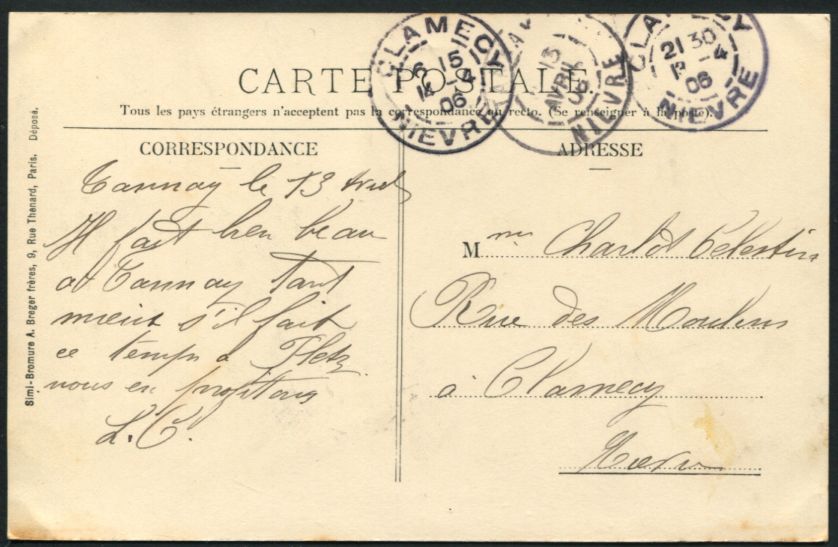 CARTE POSTALE
Tous les pays étrangers n'acceptent pas la correspondance au recto. (Se renseigner à la poste).
CLAMECY
6 15
14 -4
06
NIEVRE
13
AVRIL
06
NIEVRE
CLAMECY
21 30
13 -4
06
NIEVRE
CORRESPONDANCE
Tannay le 13 Avril
Il fait bien beau
a Tannay tant
mieux s'il fait
ce temps a
nous en profitons
L. C.
ADRESSE
Mme Charlot Celestin
Rue des Moulins
à Clamecy
Nievre
Simi-Bromure A. Breger frères, 9, Rue Thenard, Paris. Déposé.